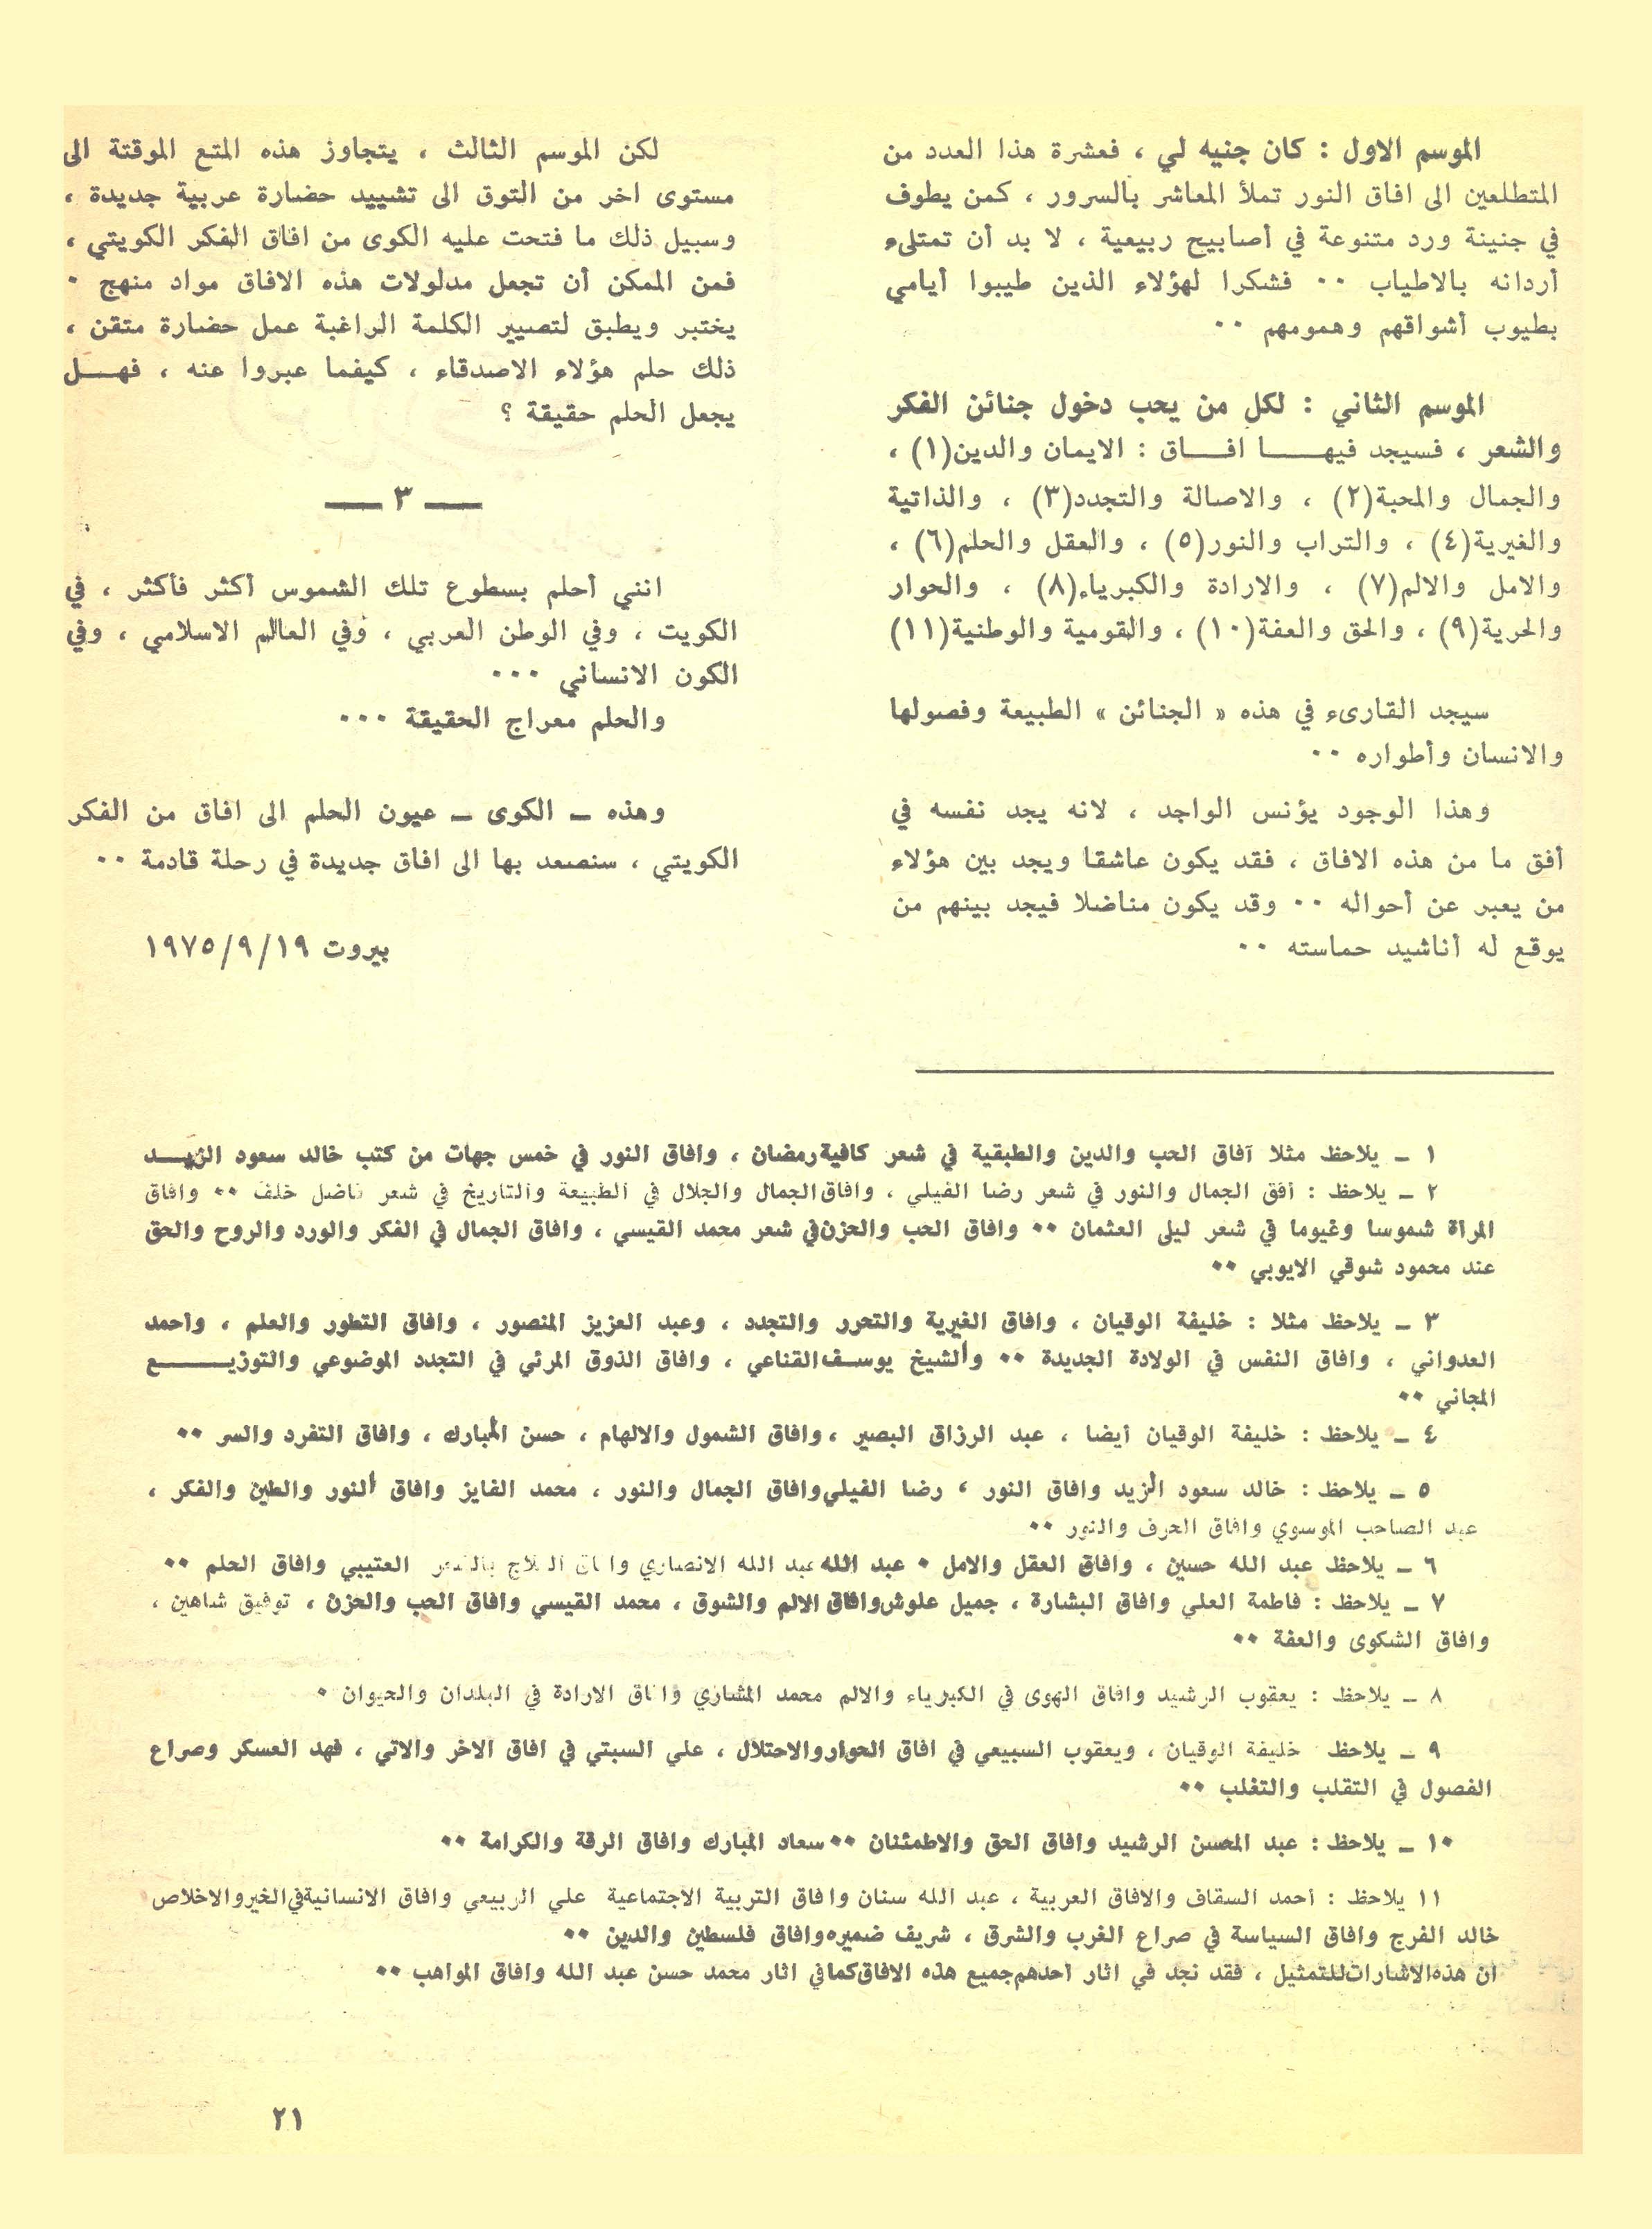 الموسم الاول : كان جنيه لي ، فعشرة هذا العدد من
المتطلعين الى افاق النور تملأ المعاشر بالسرور ، كمن يطوف
في جنينة ورد متنوعة في أصابيح ربيعية ، لا بد أن تمتلىء
أردانه بالاطياب ٠٠ فشكرا لهؤلاء الذين طيبوا أيامي
بطيوب أشواقهم وهمومهم ٠٠
الموسم الثاني : لكل من يحب دخول جنائن الفكر
والشعر ، فسيجد فيهـــا افــاق : الايمان والدين(١) ،
والجمال والمحبة(٢) ، والاصالة والتجدد(٣) ، والذاتية
والغيرية(٤) ، والتراب والنور(٥) ، والعقل والحلم(٦) ،
والامل والالم(٧) ، والارادة والكبرياء(٨) ، والحوار
والحرية(٩) ، والحق والعفة(١٠) ، والقومية والوطنية(١١)
سيجد القارىء في هذه « الجنائن » الطبيعة وفصولها
والانسان وأطواره ٠٠
وهذا الوجود يؤنس الواجد ، لانه يجد نفسه في
أفق ما من هذه الافاق ، فقد يكون عاشقا ويجد بين هؤلاء
من يعبر عن أحواله ٠٠ وقد يكون مناضلا فيجد بينهم من
يوقع له أناشيد حماسته ٠٠
لكن الموسم الثالث ، يتجاوز هذه المتع الموقتة الى
مستوى اخر من التوق الى تشييد حضارة عربية جديدة ،
وسبيل ذلك ما فتحت عليه الكوى من افاق الفكر الكويتي ،
فمن الممكن أن تجعل مدلولات هذه الافاق مواد منهج ٠
يختبر ويطبق لتصيير الكلمة الراغبة عمل حضارة متقن ،
ذلك حلم هؤلاء الاصدقاء ، كيفما عبروا عنه ، فهــل
يجعل الحلم حقيقة ؟
— ٣ —
انني أحلم بسطوع تلك الشموس أكثر فأكثر ، في
الكويت ، وفي الوطن العربي ، وفي العالم الاسلامي ، وفي
الكون الانساني ٠٠٠
والحلم معراج الحقيقة ٠٠٠
وهذه ــ الكوى ــ عيون الحلم الى افاق من الفكر
الكويتي ، سنصعد بها الى افاق جديدة في رحلة قادمة ٠٠
بيروت ١٩٧٥/٩/١٩
١ ــ يلاحظ مثلا آفاق الحب والدين والطبقية في شعر كافية رمضان ، وافاق النور في خمس جهات من كتب خالد سعود الزيـــد
٢ ــ يلاحظ : أفق الجمال والنور في شعر رضا الفيلي ، وافاق الجمال والجلال في الطبيعة والتاريخ في شعر فاضل خلف ٠٠ وافاق
المرأة شموسا وغيوما في شعر ليلى العثمان ٠٠ وافاق الحب والحزن في شعر محمد القيسي ، وافاق الجمال في الفكر والورد والروح والحق
عند محمود شوقي الايوبي ٠٠
٣ ــ يلاحظ مثلا : خليفة الوقيان ، وافاق الغيرية والتحرر والتجدد ، وعبد العزيز المنصور ، وافاق التطور والعلم ، وأحمد
العدواني ، وافاق النفس في الولادة الجديدة ٠٠ والشيخ يوسف القناعي ، وافاق الذوق المرئي في التجدد الموضوعي والتوزيـــع
المجاني ٠٠
٤ ــ يلاحظ : خليفة الوقيان أيضا ، عبد الرزاق البصير ، وافاق الشمول والالهام ، حسن المبارك ، وافاق التفرد والسر ٠٠
٥ ــ يلاحظ : خالد سعود الزيد وافاق النور ، رضا الفيلي وافاق الجمال والنور ، محمد الفايز وافاق النور والطين والفكر ،
عبد الصاحب الموسوي وافاق الحرف والنور ٠٠
٦ ــ يلاحظ عبد الله حسين ، وافاق العقل والامل ٠ عبد الله عبد الله الانصاري وافاق العلاج بالشعر العتيبي وافاق الحلم ٠٠
٧ ــ يلاحظ : فاطمة العلي وافاق البشارة ، جميل علوش وافاق الالم والشوق ، محمد القيسي وافاق الحب والحزن ، توفيق شاهين ،
وافاق الشكوى والعفة ٠٠
٨ ــ يلاحظ : يعقوب الرشيد وافاق الهوى في الكبرياء والالم محمد المشاري وافاق الارادة في البلدان والحيوان ٠
٩ ــ يلاحظ خليفة الوقيان ، ويعقوب السبيعي في افاق الحوار والاحتلال ، علي السبتي في افاق الاخر والاتي ، فهد العسكر وصراع
الفصول في التقلب والتغلب ٠٠
١٠ ــ يلاحظ : عبد المحسن الرشيد وافاق الحق والاطمئنان ٠٠ سعاد المبارك وافاق الرقة والكرامة ٠٠
١١ يلاحظ : أحمد السقاف والافاق العربية ، عبد الله سنان وافاق التربية الاجتماعية علي الربيعي وافاق الانسانية في الخير والاخلاص
خالد الفرج وافاق السياسة في صراع الغرب والشرق ، شريف ضميره وافاق فلسطين والدين ٠٠
ان هذه الاشارات للتمثيل ، فقد نجد في اثار أحدهم جميع هذه الافاق كما في اثار محمد حسن عبد الله وافاق المواهب ٠٠
٢١